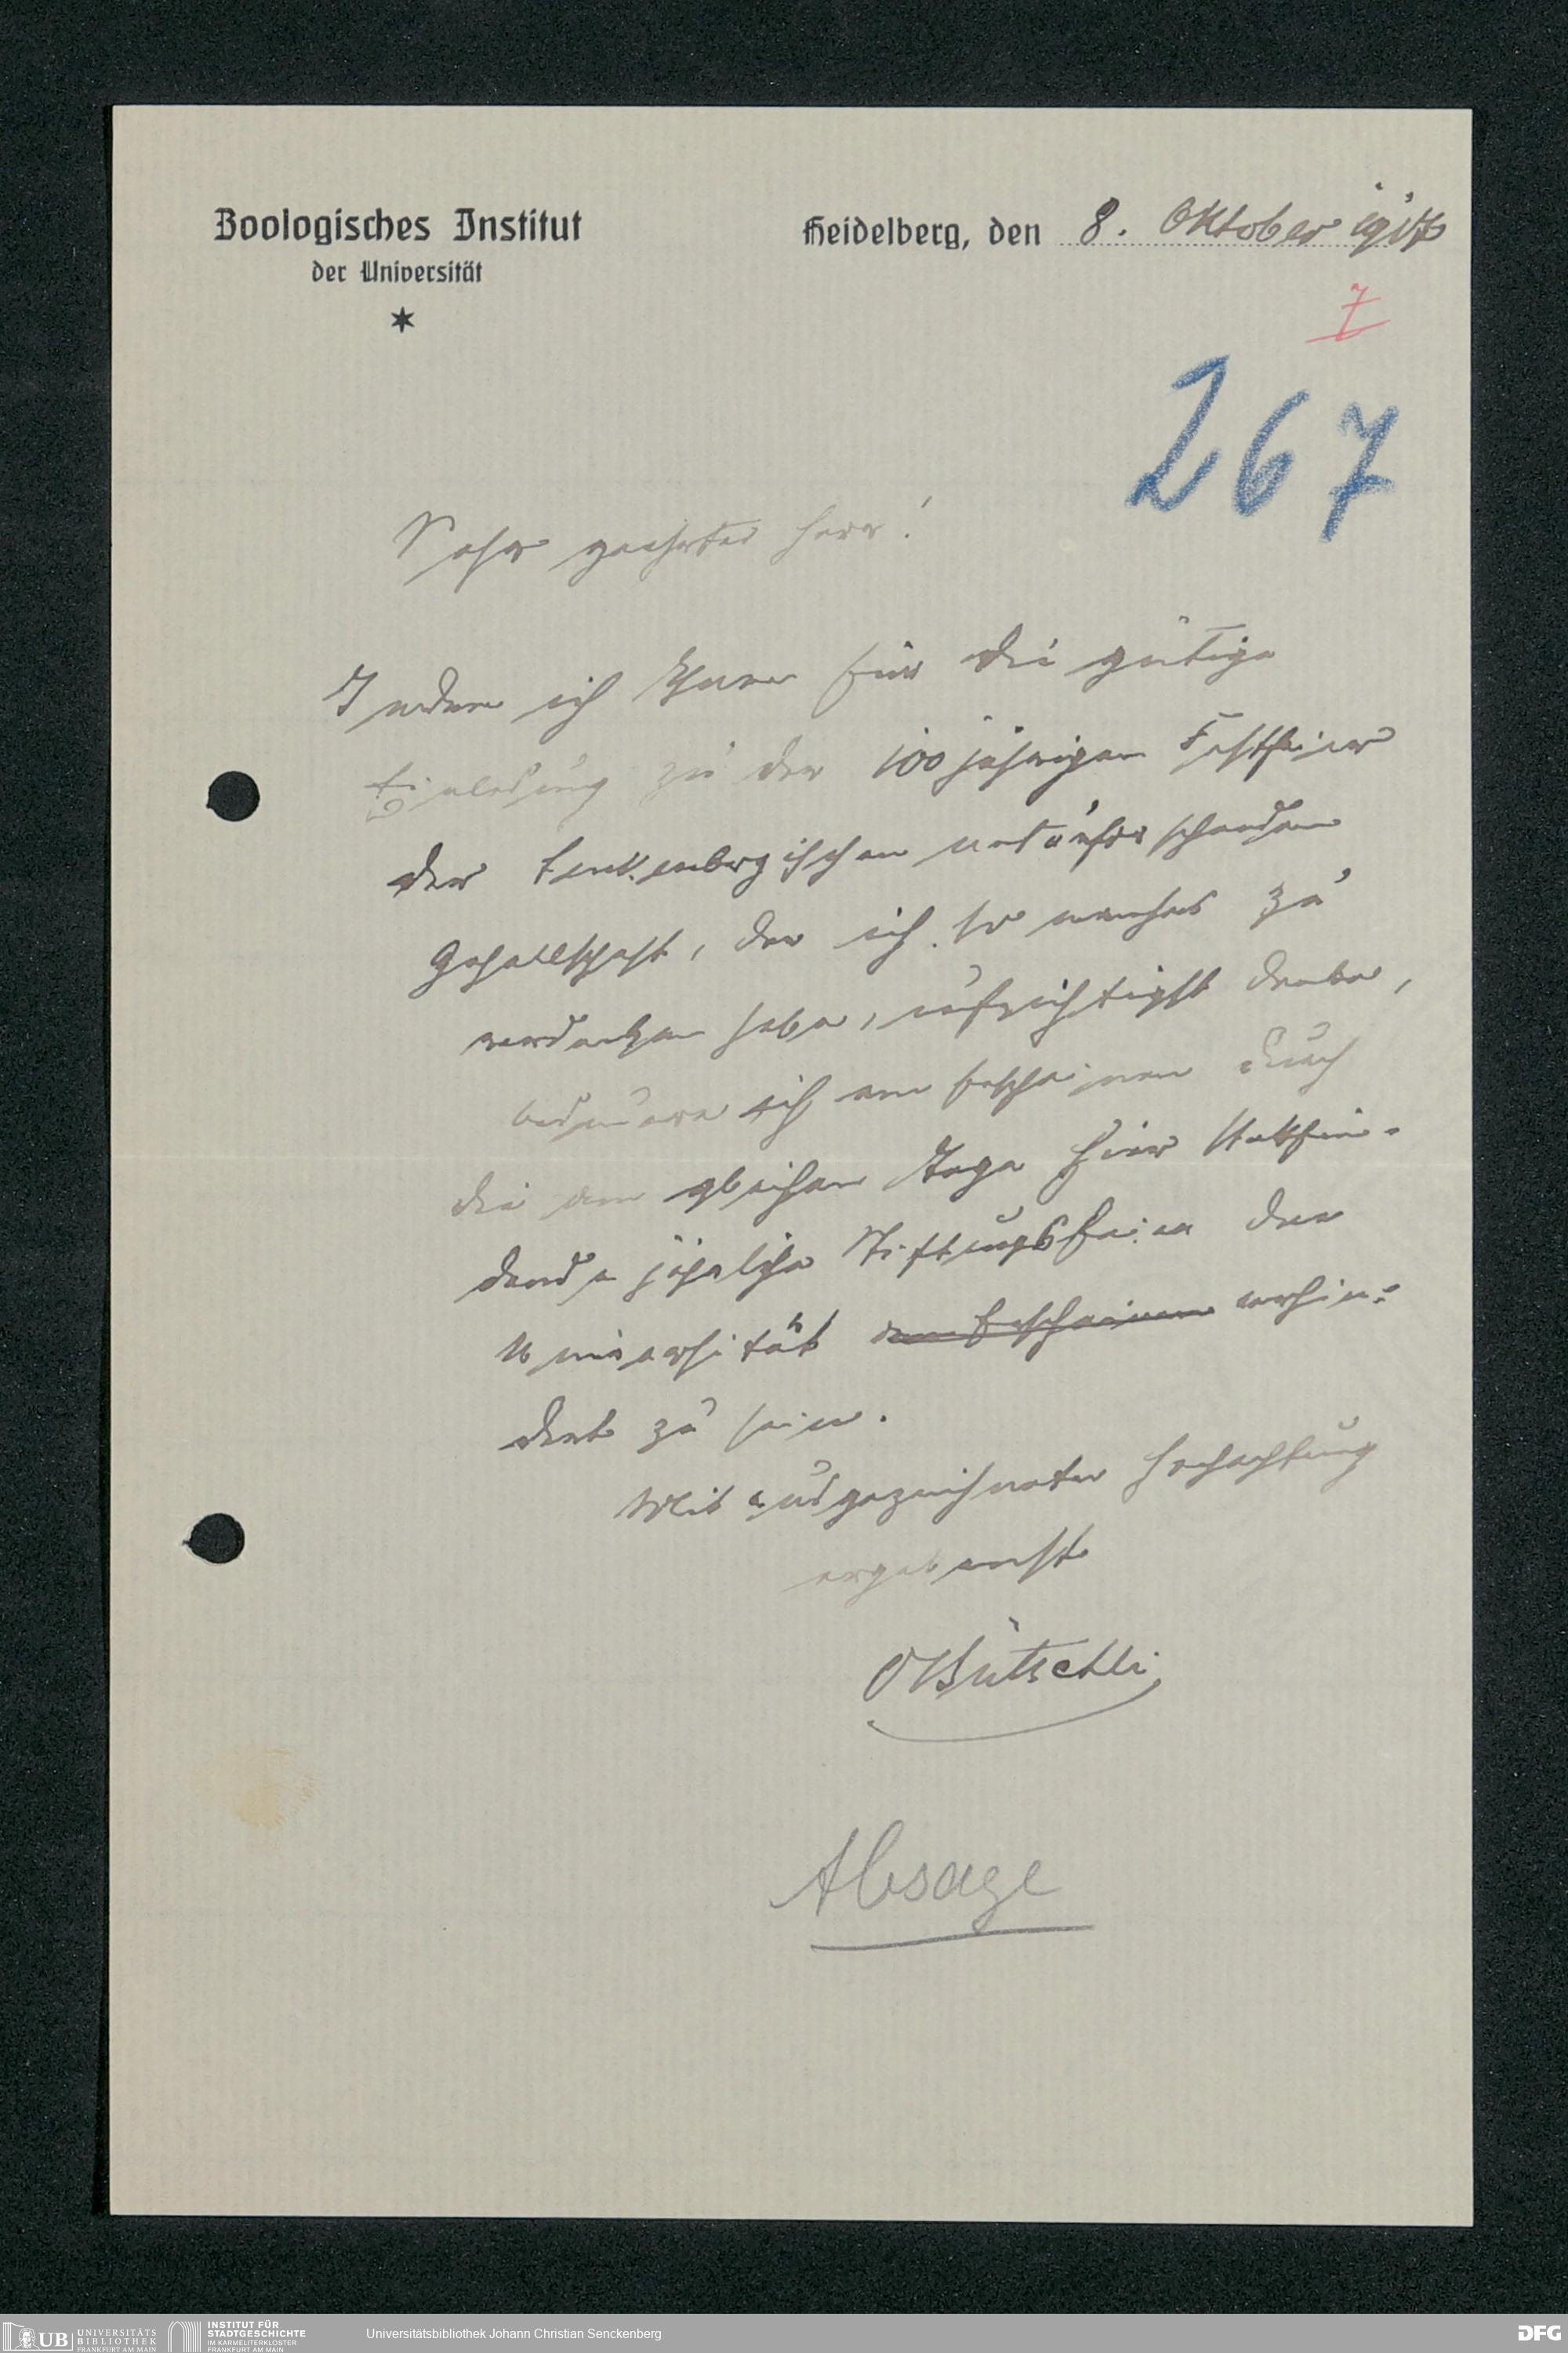 Zoologisches Institut
der Universität
Heidelberg, den 8. Oktober 1917
7
267
Sehr geehrter Herr!
Indem ich Ihnen für die gütige
Einladung zu der 100jährigen Festfeier
der Senkenbergischen naturforschenden
Gesellschaft, der ich so manches zu
verdanken habe, aufrichtigst danke,
bedauere ich am Erscheinen durch
die am gleichen Tage hier stattfin-
dende jährliche Stiftungsfeier der
Universität am Erscheinen verhin-
dert zu sein.
Mit ausgezeichneter Hochachtung
ergebenst
O Bütschli
Absage
UB UNIVERSITÄTS
BIBLIOTHEK
FRANKFURT AM MAIN
INSTITUT FÜR
STADTGESCHICHTE
IM KARMELITERKLOSTER
FRANKFURT AM MAIN
Universitätsbibliothek Johann Christian Senckenberg
DFG